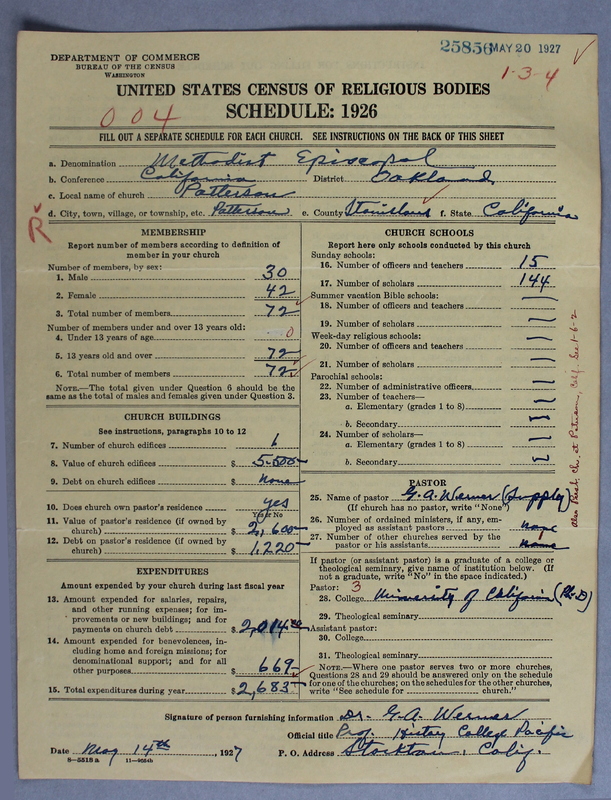 25856 MAY 20 1927
DEPARTMENT OF COMMERCE
BUREAU OF THE CENSUS
WASHINGTON
1-3-4
UNITED STATES CENSUS OF RELIGIOUS BODIES
SCHEDULE: 1926
004
FILL OUT A SEPARATE SCHEDULE FOR EACH CHURCH. SEE INSTRUCTIONS ON THE BACK OF THIS SHEET
a. Denomination Methodist Episcopal
b. Conference California District Oakland
c. Local name of church Patterson
d. City, town, village, or township, etc. Patterson e. County f. State California
R
MEMBERSHIP
Report number of members according to definition of
member in your church
Number of members, by sex:
1. Male 30
2. Female 42
3. Total number of members 72
Number of members under and over 13 years old:
4. Under 13 years of age 0
5. 13 years old and over 72
6. Total number of members 72
NOTE.—The total given under Question 6 should be
the same as the total of males and females given under Question 3.
CHURCH BUILDINGS
See instructions, paragraphs 10 to 12
7. Number of church edifices 1
8. Value of church edifices $ 5500
9. Debt on church edifices $ none
10. Does church own pastor's residence? yes
Yes or No
11. Value of pastor's residence (if owned by
church) $ 2,600
12. Debt on pastor's residence (if owned by
church) $ 1,220
EXPENDITURES
Amount expended by your church during last fiscal year
13. Amount expended for salaries, repairs,
and other running expenses; for im-
provements or new buildings; and for
payments on church debt $ 2,014
14. Amount expended for benevolences, in-
cluding home and foreign missions; for
denominational support; and for all
other purposes $ 669
15. Total expenditures during year $ 2,683
CHURCH SCHOOLS
Report here only schools conducted by this church
Sunday schools:
16. Number of officers and teachers 15
17. Number of scholars 144
Summer vacation Bible schools:
18. Number of officers and teachers
19. Number of scholars
Week-day religious schools:
20. Number of officers and teachers
21. Number of scholars
Parochial schools:
22. Number of administrative officers
23. Number of teachers—
a. Elementary (grades 1 to 8)
b. Secondary
24. Number of scholars—
a. Elementary (grades 1 to 8)
b. Secondary
PASTOR
25. Name of pastor G. A. Werner (Supply)
(If church has no pastor, write "None")
26. Number of ordained ministers, if any, em-
ployed as assistant pastors none
27. Number of other churches served by the
pastor or his assistants none
If pastor (or assistant pastor) is a graduate of a college or
theological seminary, give name of institution below. (If
not a graduate, write "No" in the space indicated.)
Pastor: 3
28. College University of California (Ph.D)
29. Theological seminary
Assistant pastor:
30. College
31. Theological seminary
NOTE.—Where one pastor serves two or more churches,
Questions 28 and 29 should be answered only on the schedule
for one of the churches; on the schedules for the other churches,
write "See schedule for church."
Signature of person furnishing information Dr. G. A. Werner
Official title Prof. History College Pacific
Date May 14th, 1927 P. O. Address Stockton, Calif.
8—5518 a 11—9034b